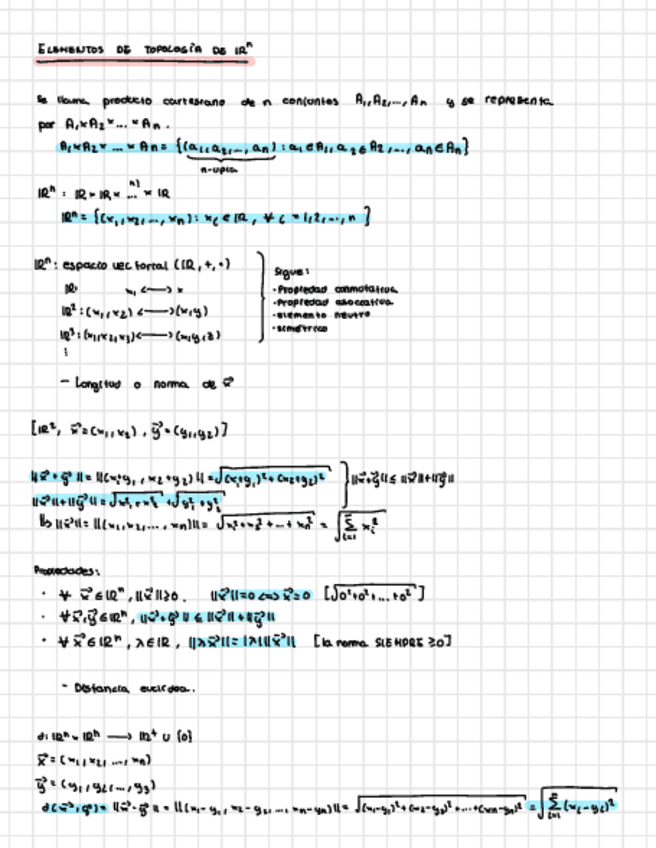 ELEMENTOS DE TOPOLOGÍA DE IRⁿ
Se llama producto cartesiano de n conjuntos A₁, A₂, ..., Aₙ y se representa
por A₁ × A₂ × ... × Aₙ.
A₁ × A₂ × ... × Aₙ = {(a₁, a₂, ..., aₙ) : a₁ ∈ A₁, a₂ ∈ A₂, ..., aₙ ∈ Aₙ}
n-upla
IRⁿ : IR × IR × ...ⁿ⁾ × IR
IRⁿ = {(x₁, x₂, ..., xₙ) : xᵢ ∈ IR, ∀ i = 1, 2, ..., n}
IRⁿ : espacio vectorial (IR, +, ·)
IR: x₁ <—> x
IR² : (x₁, x₂) <—> (x, y)
IR³ : (x₁, x₂, x₃) <—> (x, y, z)
⋮
Sigue:
· Propiedad conmutativa
· Propiedad asociativa
· elemento neutro
· simétrico
- Longitud o norma de x⃗
[IR², x⃗ = (x₁, x₂), y⃗ = (y₁, y₂)]
||x⃗ + y⃗|| = ||(x₁+y₁, x₂+y₂)|| = √((x₁+y₁)² + (x₂+y₂)²)
||x⃗|| + ||y⃗|| = √(x₁² + x₂²) + √(y₁² + y₂²)
||x⃗ + y⃗|| ≤ ||x⃗|| + ||y⃗||
↳ ||x⃗|| = ||(x₁, x₂, ..., xₙ)|| = √(x₁² + x₂² + ... + xₙ²) = √(∑ᵢ₌₁ⁿ xᵢ²)
Propiedades:
· ∀ x⃗ ∈ IRⁿ, ||x⃗|| ≥ 0. ||x⃗|| = 0 <=> x⃗ = 0 [√(0² + 0² + ... + 0²)]
· ∀ x⃗, y⃗ ∈ IRⁿ, ||x⃗ + y⃗|| ≤ ||x⃗|| + ||y⃗||
· ∀ x⃗ ∈ IRⁿ, λ ∈ IR, ||λx⃗|| = |λ| ||x⃗|| [la norma SIEMPRE ≥ 0]
- Distancia euclídea.
d: IRⁿ × IRⁿ —> IR⁺ ∪ {0}
x⃗ = (x₁, x₂, ..., xₙ)
y⃗ = (y₁, y₂, ..., y₃)
d(x⃗, y⃗) = ||x⃗ - y⃗|| = ||(x₁-y₁, x₂-y₂, ..., xₙ-yₙ)|| = √((x₁-y₁)² + (x₂-y₂)² + ... + (xₙ-yₙ)²) = √(∑ᵢ₌₁ⁿ (xᵢ-yᵢ)²)